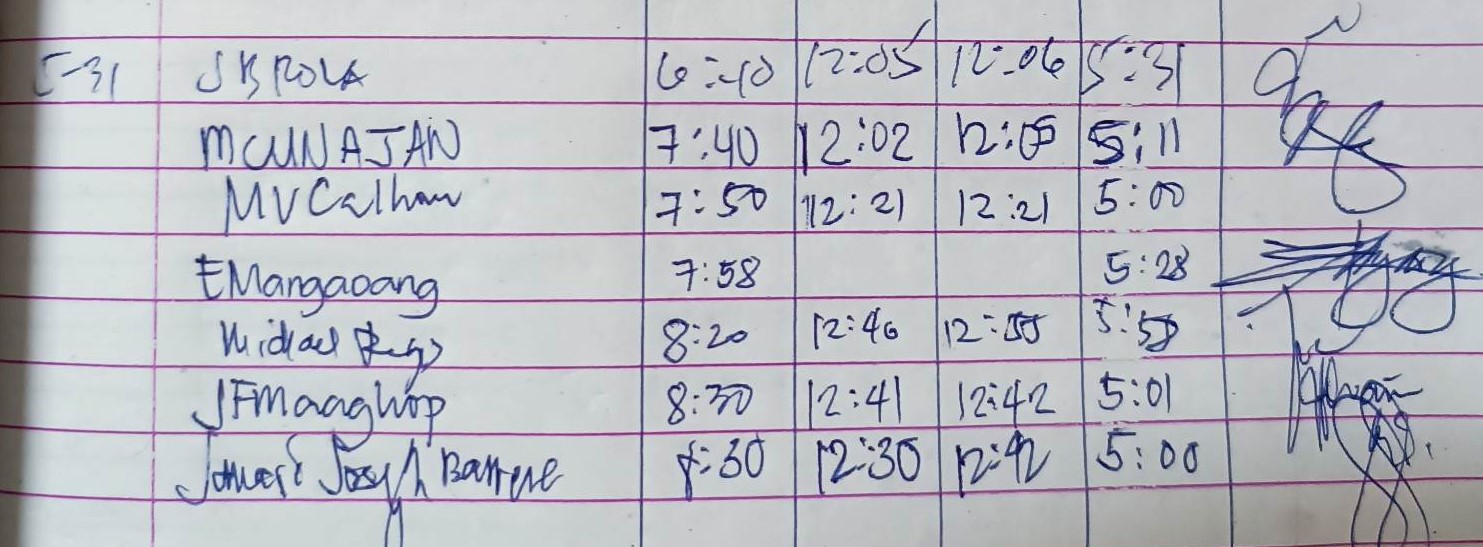 5-31 JB ROLA 6:40 12:05 12:06 5:31
MCUNAJAN 7:40 12:02 12:05 5:11
MVCalhow 7:50 12:21 12:21 5:00
EMangaoang 7:58 5:28
Michael 8:20 12:46 12:55 5:
JFMaaghop 8:30 12:41 12:42 5:01
Joseph 8:30 12:30 12:42 5:00